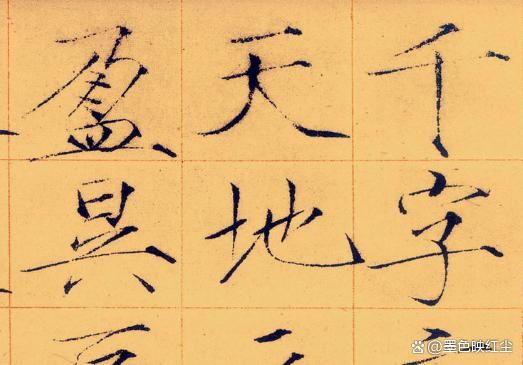 千字
天地
盈昃
墨色映红尘